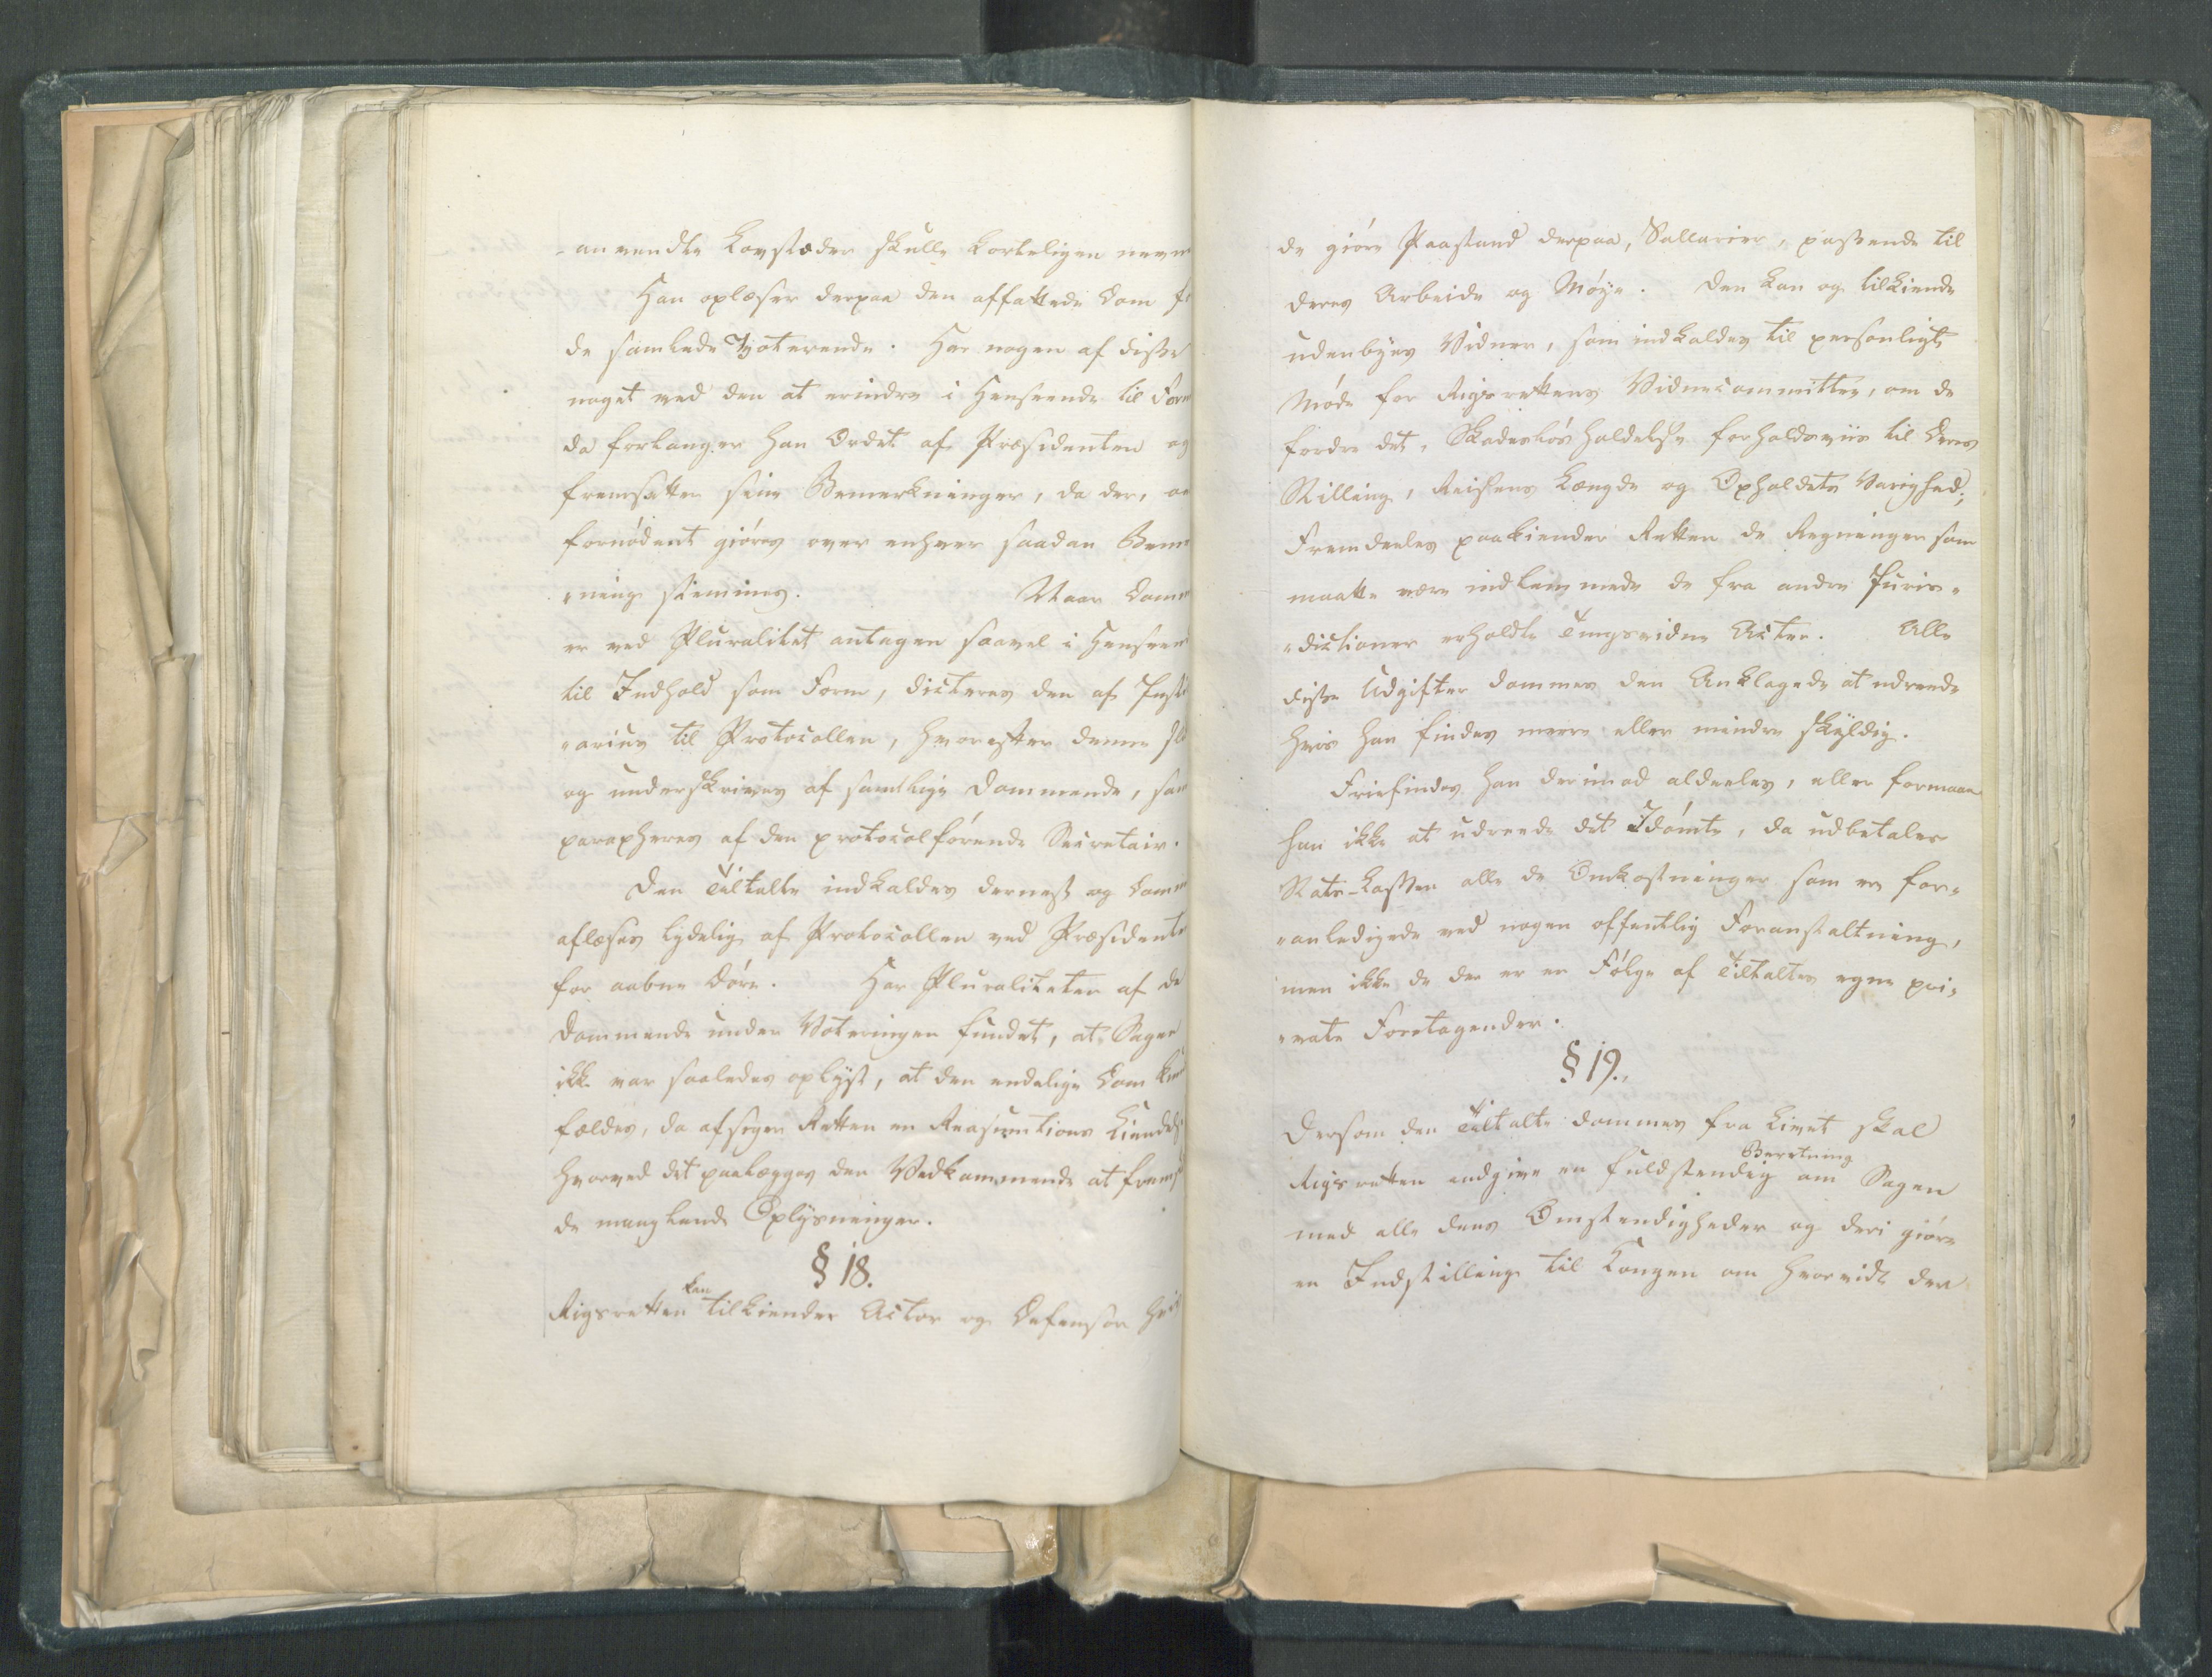 -anvendte Lovstæder skulle korteligen nevn
Han oplæser derpaa den affattede Dom f
de samlede Voterende. Har nogen af disse
noget ved den at erindre i Henseende til Form
da forlanger han Ordet af Præsidenten og
fremsætter sine Bemerkninger, da der, om
fornødent giøres over enhver saadan Bem
"ning stemmes. Naar Domm
er ved Pluralitet antagen saavel i Henseen
til Indhold som Form, dicteres den af Justi
"arius til Protocollen, hvorefter denne slu
og underskrives af samtlige Dømmende, sam
parapheres af den protocolførende Secretair.
Den Tiltalte indkaldes dernest og Domm
aflæses lydelig af Protocollen ved Præsidente
for aabne Døre. Har Pluraliteten af de
Dømmende under Voteringen fundet, at Sagen
ikke var saaledes oplyst, at den endelige Dom kun
fældes, da afsiger Retten en Reasumtions Kiendels
hvorved det paalægges den Vedkommende at frems
de manglende Oplysninger.
§ 18.
kan
Rigsretten tilkiender Actor og Defensor hvis
de giøre Paastand derpaa, Sallarier, passende til
deres Arbeide og Møye. Den kan og tilkiende
udenbyes Vidner, som indkaldes til personligt
Møde for Rigsrettens Vidnecommittee, om de
fordre det, Skadesløsholdelse forholdsviis til deres
Stilling, Reisens Længde og Opholdets Varighed;
Fremdeeles paakiender Retten de Regninger som
maatte være indkommede de fra andre Juris-
"dictioner erholdte Tingsvidne Acter. Alle
disse Udgifter dømmes den Anklagede at udrede
hvis han findes mere eller mindre skyldig.
Friefindes han derimod aldeeles, eller formaaer
han ikke at udrede det Idømte, da udbetaler
Stats-Cassen alle de Omkostninger som ere for-
"anledigede ved nogen offentlig Foranstaltning,
men ikke de der er en Følge af Tiltaltes egne pri-
"vate Foretagender.
§ 19.
Dersom den Tiltalte dømmes fra Livet skal
Beretning
Rigsretten indgive en fuldstendig om Sagen
med alle dens Omstendigheder og deri giøre
en Indstilling til Kongen om hvorvidt der